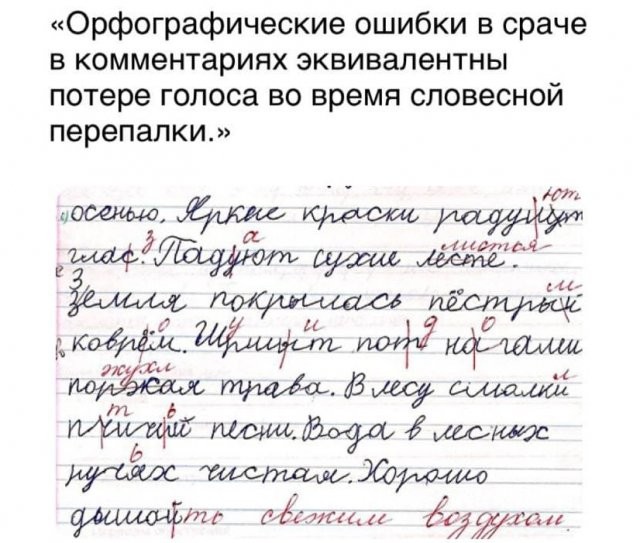 «Орфографические ошибки в сраче
в комментариях эквивалентны
потере голоса во время словесной
перепалки.»
ют
осенью. Яркие краски радуют
з а листья
глас. Падают сухие лесте.
З м
земля покрылась пёстрый
о у и д о
коврём. Шршит пот нагами
жухл
трава. В лесу смолкли
т ь
песни. Вода в лесных
ь
ручях чистая. Хорошо
дышать свежим воздухом.